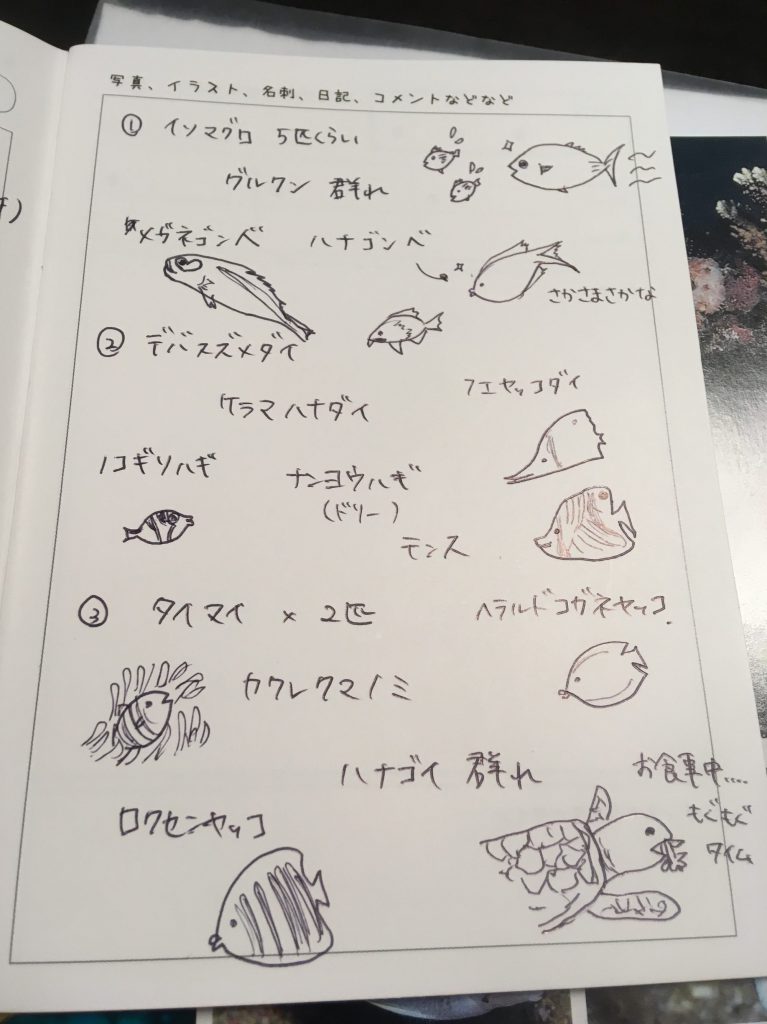 写真、イラスト、名刺、日記、コメントなどなど
① イソマグロ 5匹くらい
グルクン 群れ
メガネゴンベ ハナゴンベ
さかさまさかな
② デバスズメダイ
フエヤッコダイ
ケラマハナダイ
ノコギリハギ
ナンヨウハギ
(ドリー)
テンス
③ タイマイ × 2匹
ヘラルドコガネヤッコ.
カクレクマノミ
ハナゴイ 群れ
お食事中....
もぐもぐ
タイム
ロクセンヤッコ